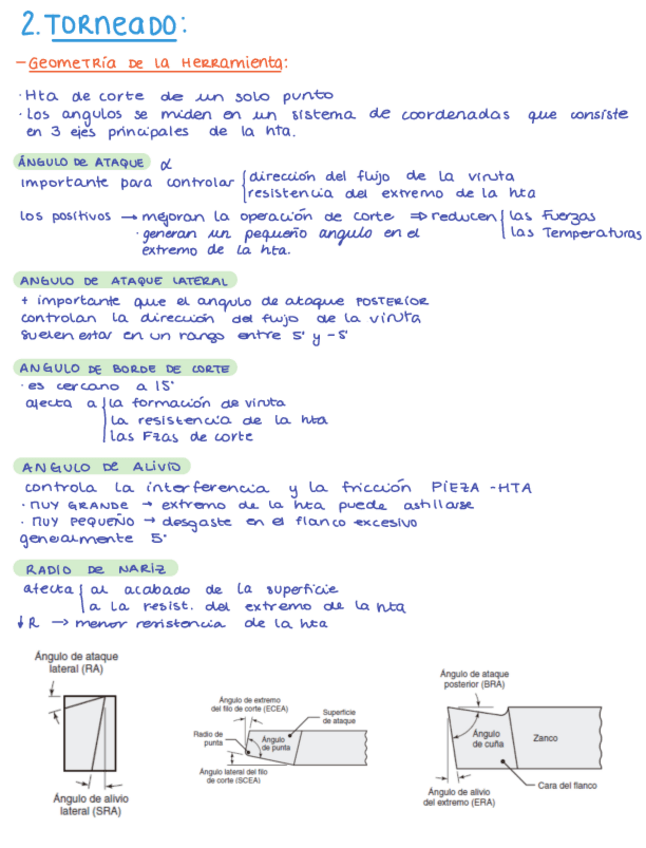 2. TORNEADO:
- GEOMETRÍA DE LA HERRAMIENTA:
· Hta de corte de un solo punto
· Los angulos se miden en un sistema de coordenadas que consiste
en 3 ejes principales de la hta.
ÁNGULO DE ATAQUE α
importante para controlar dirección del flujo de la viruta
resistencia del extremo de la hta
los positivos → mejoran la operación de corte ⇒ reducen las Fuerzas
· generan un pequeño angulo en el las Temperaturas
extremo de la hta.
ANGULO DE ATAQUE LATERAL
+ importante que el angulo de ataque POSTERIOR
controlan la dirección del flujo de la viruta
suelen estar en un rango entre 5° y -5°
ANGULO DE BORDE DE CORTE
· es cercano a 15°
afecta a la formación de viruta
la resistencia de la hta
las Fzas de corte
ANGULO DE ALIVIO
controla la interferencia y la fricción PIEZA - HTA
· MUY GRANDE → extremo de la hta puede astillarse
· MUY PEQUEÑO → desgaste en el flanco excesivo
generalmente 5°
RADIO DE NARIZ
afecta al acabado de la superficie
a la resist. del extremo de la hta
↓ R → menor resistencia de la hta
Ángulo de ataque
lateral (RA)
Ángulo de alivio
lateral (SRA)
Ángulo de extremo
del filo de corte (ECEA)
Superficie
de ataque
Radio de
punta
Ángulo
de punta
Ángulo lateral del filo
de corte (SCEA)
Ángulo de ataque
posterior (BRA)
Ángulo
de cuña
Zanco
Cara del flanco
Ángulo de alivio
del extremo (ERA)